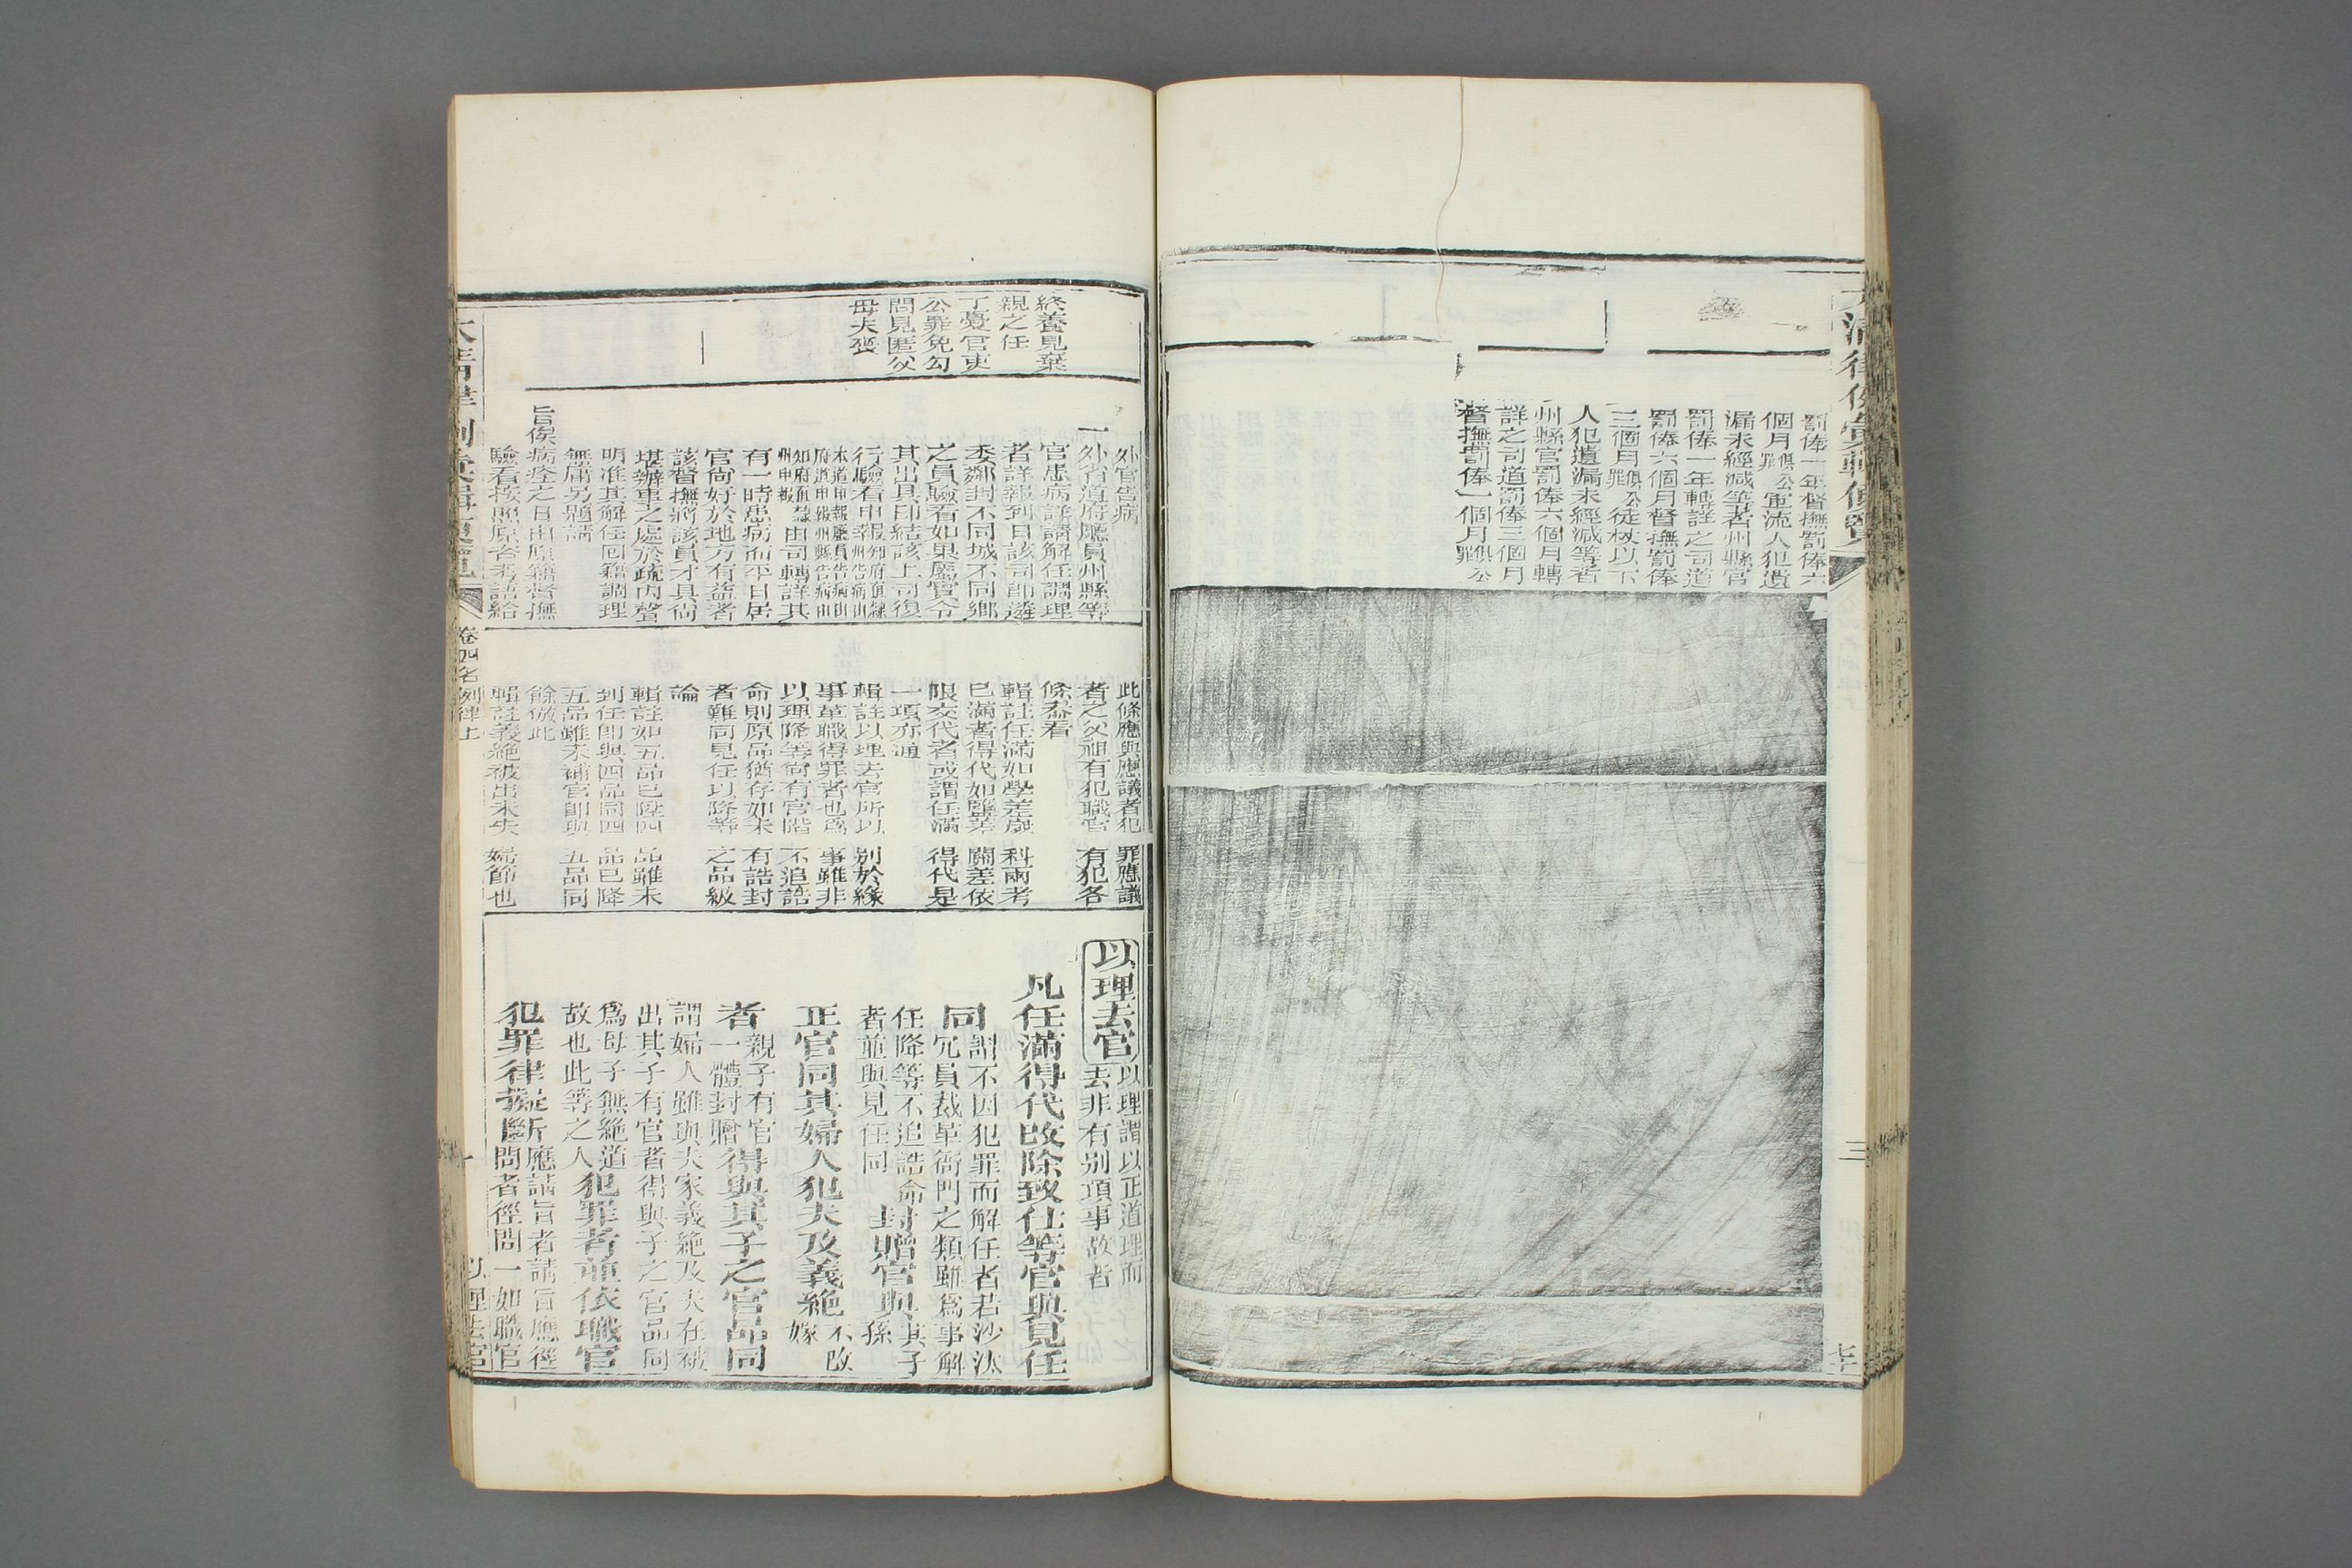 罰俸一年督撫罰俸六
個月俱公罪軍流人犯遺
漏未經減等者州縣官
罰俸一年轉詳之司道
罰俸六個月督撫罰俸
三個月俱公罪徒杖以下
人犯遺漏未經減等者
州縣官罰俸六個月轉
詳之司道罰俸三個月
督撫罰俸一個月俱公罪
終養見棄
親之任
丁憂官吏
公罪免勾
問見匿父
母夫喪
外官告病
一外省道府廳員州縣等
官患病詳請解任調理
者詳報到日該司即遴
委鄰封不同城不同鄉
之員驗看如果屬實令
其出具印結該上司復
行驗看申報知府直隸州告病由
本道申報廳員告病由
府道申報州縣告病由
知府直隸州申報由司轉詳其
有一時患病而平日居
官尚好於地方有益者
該督撫將該員才具尚
堪辦事之處於疏內聲
明准其解任回籍調理
無庸另題請
旨俟病痊之日由原籍督撫
驗看按照原咨考語給
此條應與應議者犯罪應議
者之父祖有犯職官有犯各
條叅看
輯註任滿如學差歲科兩考
已滿者得代如鹽差關差依
限交代者或謂任滿得代是
一項亦通
輯註以理去官所以別於緣
事革職得罪者也爲事雖非
以理降等尚有官階不追誥
命則原品猶存如未有誥封
者難同見任以降等之品級
論
輯註如五品已陞四品雖未
到任即與四品同四品已降
五品雖未補官即與五品同
餘倣此
輯註義絶被出未失婦節也
以理去官
以理謂以正道理而
去非有别項事故者
凡任滿得代改除致仕等官與見任
同
謂不因犯罪而解任者若沙汰
冗員裁革衙門之類雖爲事解
任降等不追誥命
者並與見任同
封贈官與其子孫
正官同其婦人犯夫及義絶不改嫁
者親子有官一體封贈得與其子之官品同
謂婦人雖與夫家義絶及夫在被
出其子有官者得與子之官品同
爲母子無絶道
故也此等之人
犯罪者並依職官
犯罪律擬斷
應請旨者請旨應徑
問者徑問一如職官
卷四名例律上
以理去官